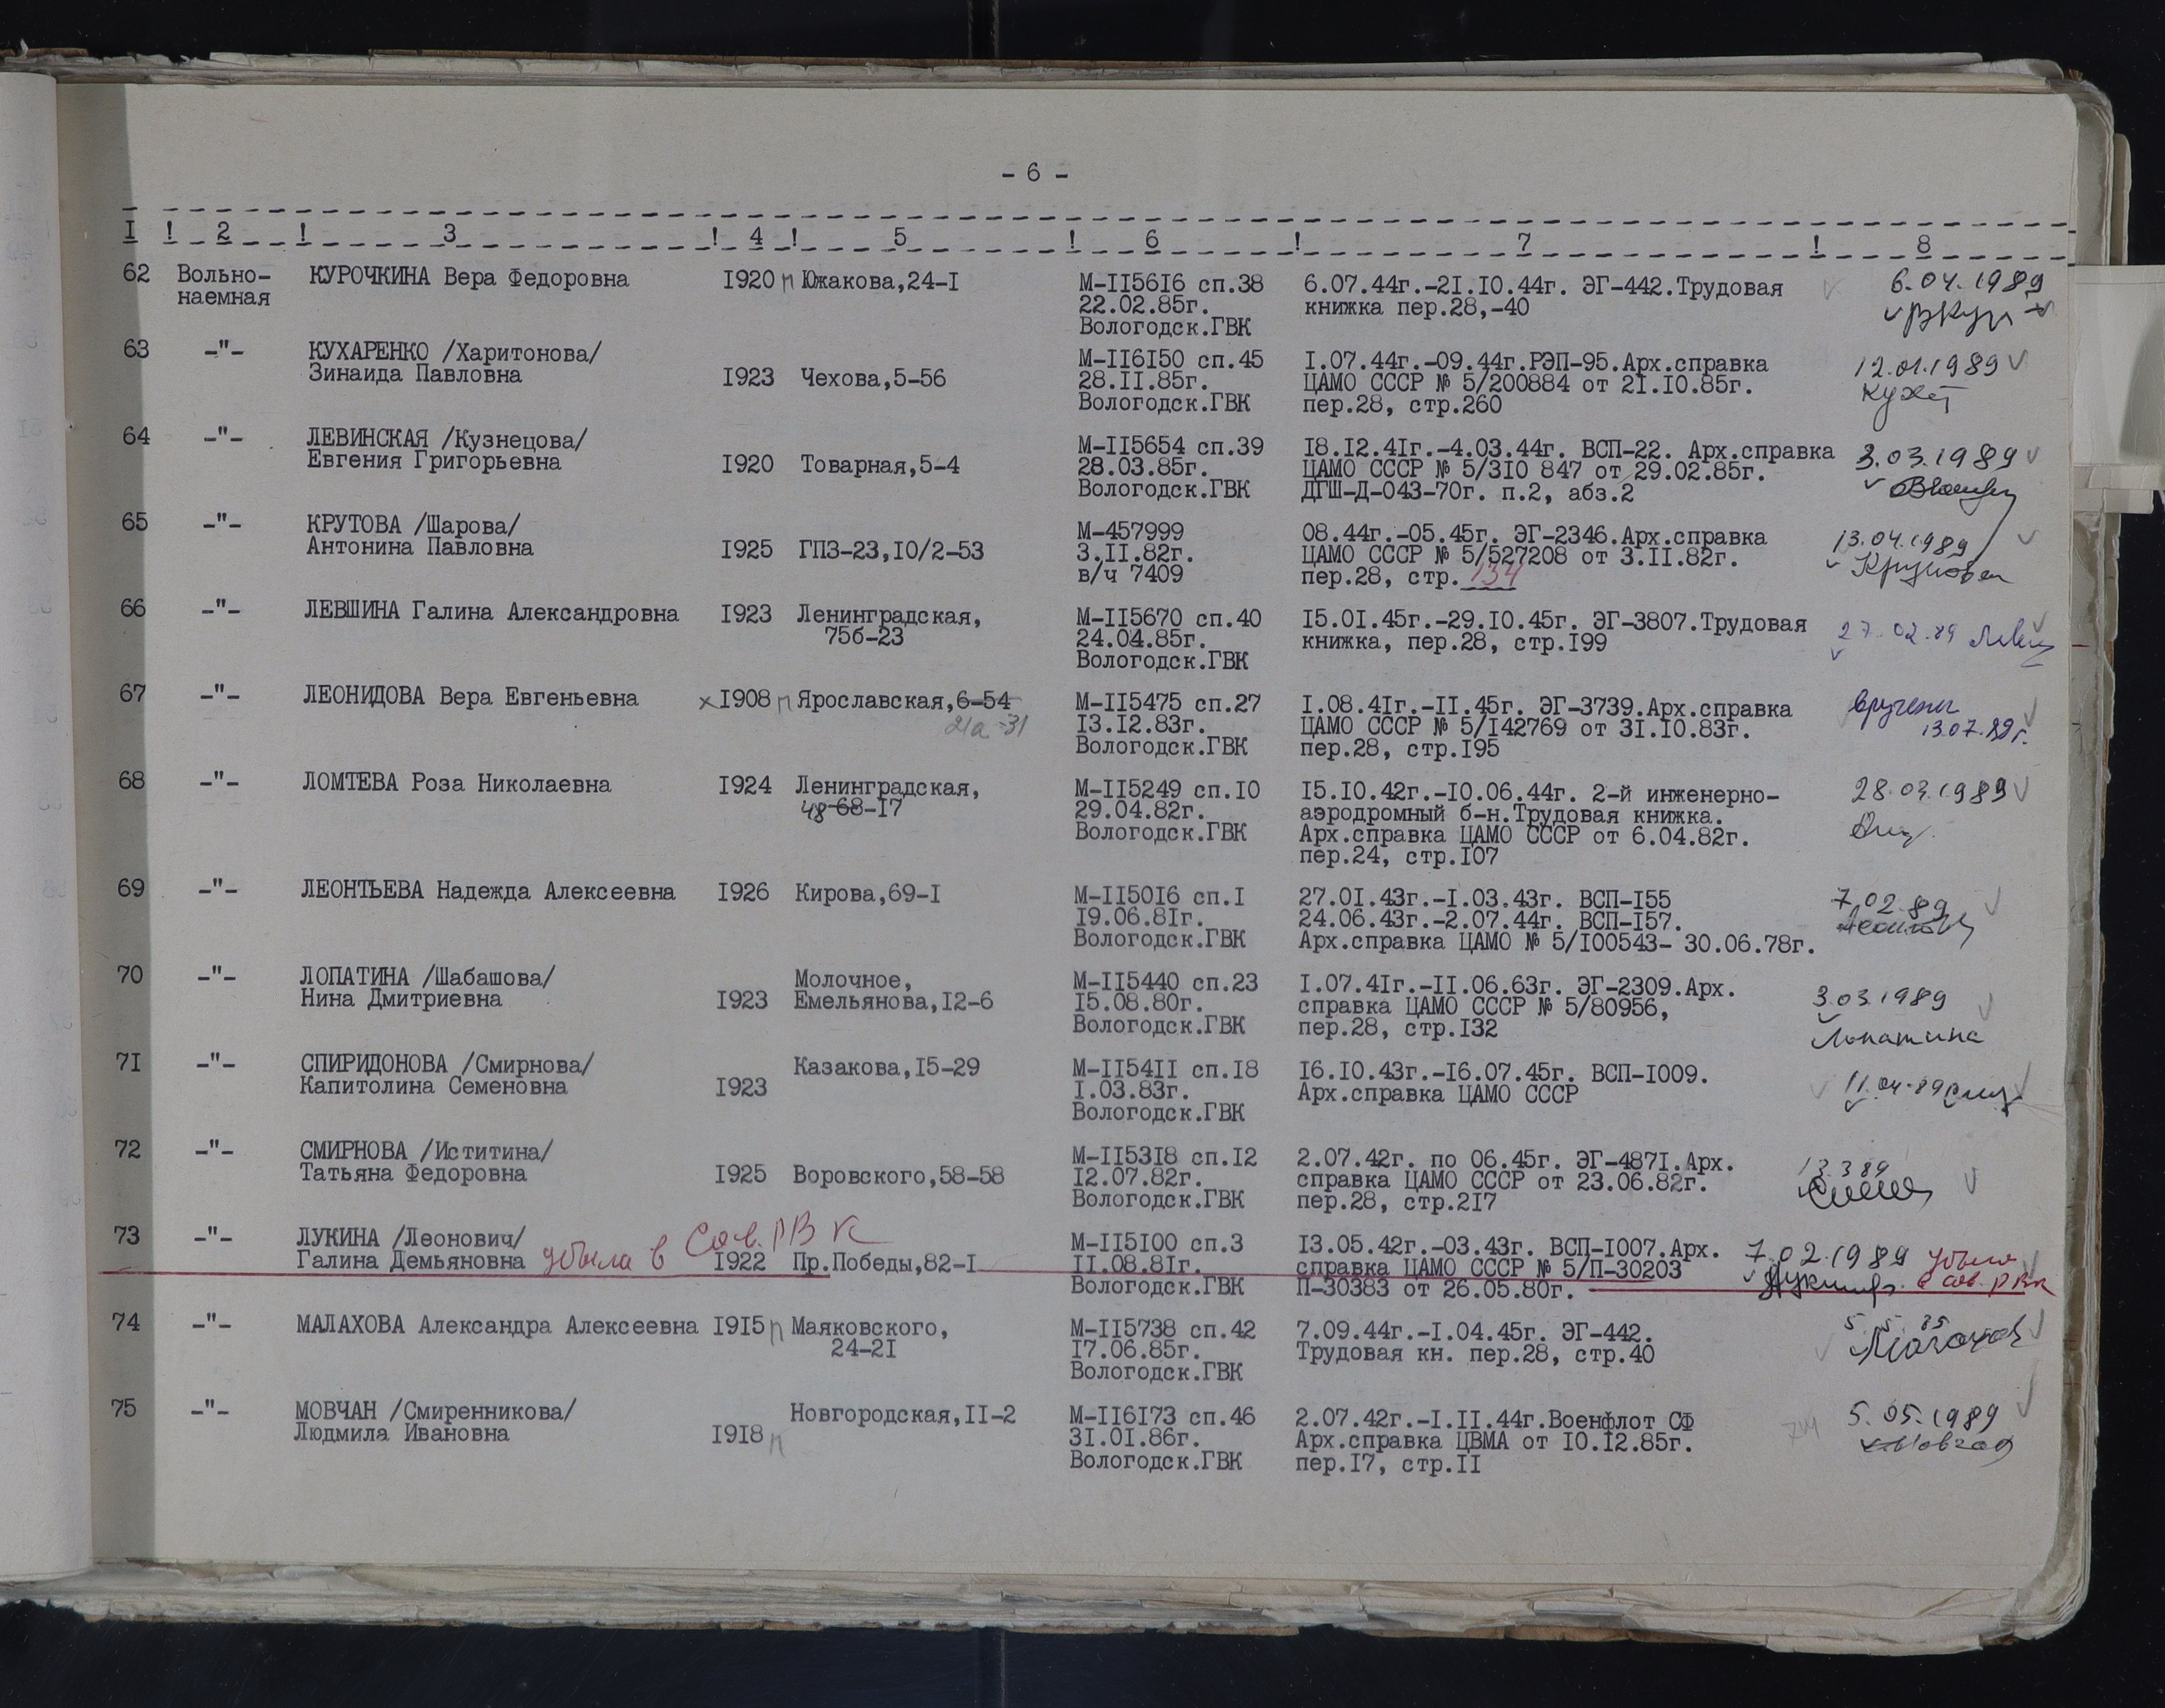 - 6 -
I ! 2 ! 3 ! 4 ! 5 ! 6 ! 7 ! 8
62 Вольно- КУРОЧКИНА Вера Федоровна I920 п Южакова,24-I М-II56I6 сп.38 6.07.44г.-2I.I0.44г. ЭГ-442.Трудовая 6.04.1989
наемная 22.02.85г. книжка пер.28,-40
Вологодск.ГВК
63 -"- КУХАРЕНКО /Харитонова/ М-II6I50 сп.45 I.07.44г.-09.44г.РЭП-95.Арх.справка 12.01.1989
Зинаида Павловна I923 Чехова,5-56 28.II.85г. ЦАМО СССР № 5/200884 от 2I.I0.85г.
Вологодск.ГВК пер.28, стр.260
64 -"- ЛЕВИНСКАЯ /Кузнецова/ М-II5654 сп.39 I8.I2.4Iг.-4.03.44г. ВСП-22. Арх.справка 3.03.1989
Евгения Григорьевна I920 Товарная,5-4 28.03.85г. ЦАМО СССР № 5/3I0 847 от 29.02.85г.
Вологодск.ГВК ДГШ-Д-043-70г. п.2, абз.2
65 -"- КРУТОВА /Шарова/ М-457999 08.44г.-05.45г. ЭГ-2346.Арх.справка 13.04.1989
Антонина Павловна I925 ГПЗ-23,I0/2-53 3.II.82г. ЦАМО СССР № 5/527208 от 3.II.82г. Крутова
в/ч 7409 пер.28, стр. 134
66 -"- ЛЕВШИНА Галина Александровна I923 Ленинградская, М-II5670 сп.40 I5.0I.45г.-29.I0.45г. ЭГ-3807.Трудовая 27.02.89
75б-23 24.04.85г. книжка, пер.28, стр.I99
Вологодск.ГВК
67 -"- ЛЕОНИДОВА Вера Евгеньевна х I908 п Ярославская,6-54 М-II5475 сп.27 I.08.4Iг.-II.45г. ЭГ-3739.Арх.справка вручены
21а-31 I3.I2.83г. ЦАМО СССР № 5/I42769 от 3I.I0.83г. 13.07.89г.
Вологодск.ГВК пер.28, стр.I95
68 -"- ЛОМТЕВА Роза Николаевна I924 Ленинградская, М-II5249 сп.I0 I5.I0.42г.-I0.06.44г. 2-й инженерно- 28.03.1989
48 68-I7 29.04.82г. аэродромный б-н.Трудовая книжка.
Вологодск.ГВК Арх.справка ЦАМО СССР от 6.04.82г.
пер.24, стр.I07
69 -"- ЛЕОНТЬЕВА Надежда Алексеевна I926 Кирова,69-I М-II50I6 сп.I 27.0I.43г.-I.03.43г. ВСП-I55 7.02.89
I9.06.8Iг. 24.06.43г.-2.07.44г. ВСП-I57.
Вологодск.ГВК Арх.справка ЦАМО № 5/I00543- 30.06.78г.
70 -"- ЛОПАТИНА /Шабашова/ Молочное, М-II5440 сп.23 I.07.4Iг.-II.06.63г. ЭГ-2309.Арх. 3.03.1989
Нина Дмитриевна I923 Емельянова,I2-6 I5.08.80г. справка ЦАМО СССР № 5/80956,
Вологодск.ГВК пер.28, стр.I32 Лопатина
7I -"- СПИРИДОНОВА /Смирнова/ Казакова,I5-29 М-II54II сп.I8 I6.I0.43г.-I6.07.45г. ВСП-I009. 11.04.89
Капитолина Семеновна I923 I.03.83г. Арх.справка ЦАМО СССР
Вологодск.ГВК
72 -"- СМИРНОВА /Иститина/ М-II53I8 сп.I2 2.07.42г. по 06.45г. ЭГ-487I.Арх. 13.3.89
Татьяна Федоровна I925 Воровского,58-58 I2.07.82г. справка ЦАМО СССР от 23.06.82г.
Вологодск.ГВК пер.28, стр.2I7
73 -"- ЛУКИНА /Леонович/ М-II5I00 сп.3 I3.05.42г.-03.43г. ВСП-I007.Арх. 7.02.1989 убыла
Галина Демьяновна убыла в Сов.РВК I922 Пр.Победы,82-I II.08.8Iг. справка ЦАМО СССР № 5/П-30203 в Сов.РВК
Вологодск.ГВК П-30383 от 26.05.80г.
74 -"- МАЛАХОВА Александра Алексеевна I9I5 п Маяковского, М-II5738 сп.42 7.09.44г.-I.04.45г. ЭГ-442.
24-2I I7.06.85г. Трудовая кн. пер.28, стр.40
Вологодск.ГВК
75 -"- МОВЧАН /Смиренникова/ Новгородская,II-2 М-II6I73 сп.46 2.07.42г.-I.II.44г.Военфлот СФ 5.05.1989
Людмила Ивановна I9I8 п 3I.0I.86г. Арх.справка ЦВМА от I0.I2.85г.
Вологодск.ГВК пер.I7, стр.II